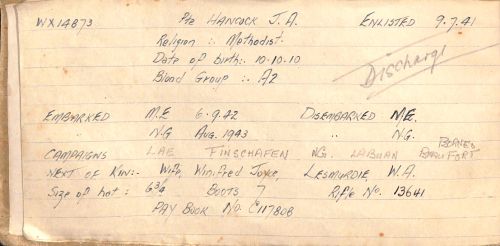 WX14873 Pte HANCOCK J. A. ENLISTED 9.7.41
Religion :. Methodist.
Date of birth:. 10.10.10
Blood Group :. A2
Discharge
EMBARKED M.E 6.9.42 DISEMBARKED M.E.
" N.G Aug. 1943 " N.G.
BORNEO
CAMPAIGNS LAE FINSCHAFEN N.G. LABUAN BEAUFORT
NEXT OF KIN:- Wife, Winifred Joyce, LESMURDIE, W.A.
Size of hat : 6¾ BOOTS 7 Rifle No. 13641
PAY BOOK No. C117808